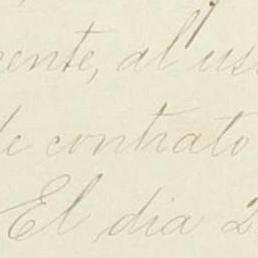 ente, al us
de contrato
El dia 2